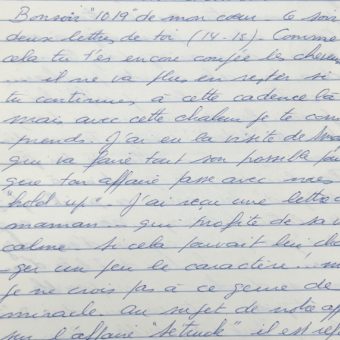 Bonsoir "1019" de mon cœur. Ce soir
deux lettres de toi (14-15) Comme
cela tu t'es encore coupée les cheveux
.... il ne va plus en rester si
tu continues à cette cadence là
mais avec cette chaleur je te com
prends. J'ai eu la visite de
qui va faire tout son possible
que ton affaire passe avec
"hold up". J'ai reçu une lettre
maman.... qui profite de sa
calme si cela pouvait lui chan
ger un peu le caractère!
je ne crois pas à ce genre de
miracle. Au sujet de notre aff
sur l'affaire il est